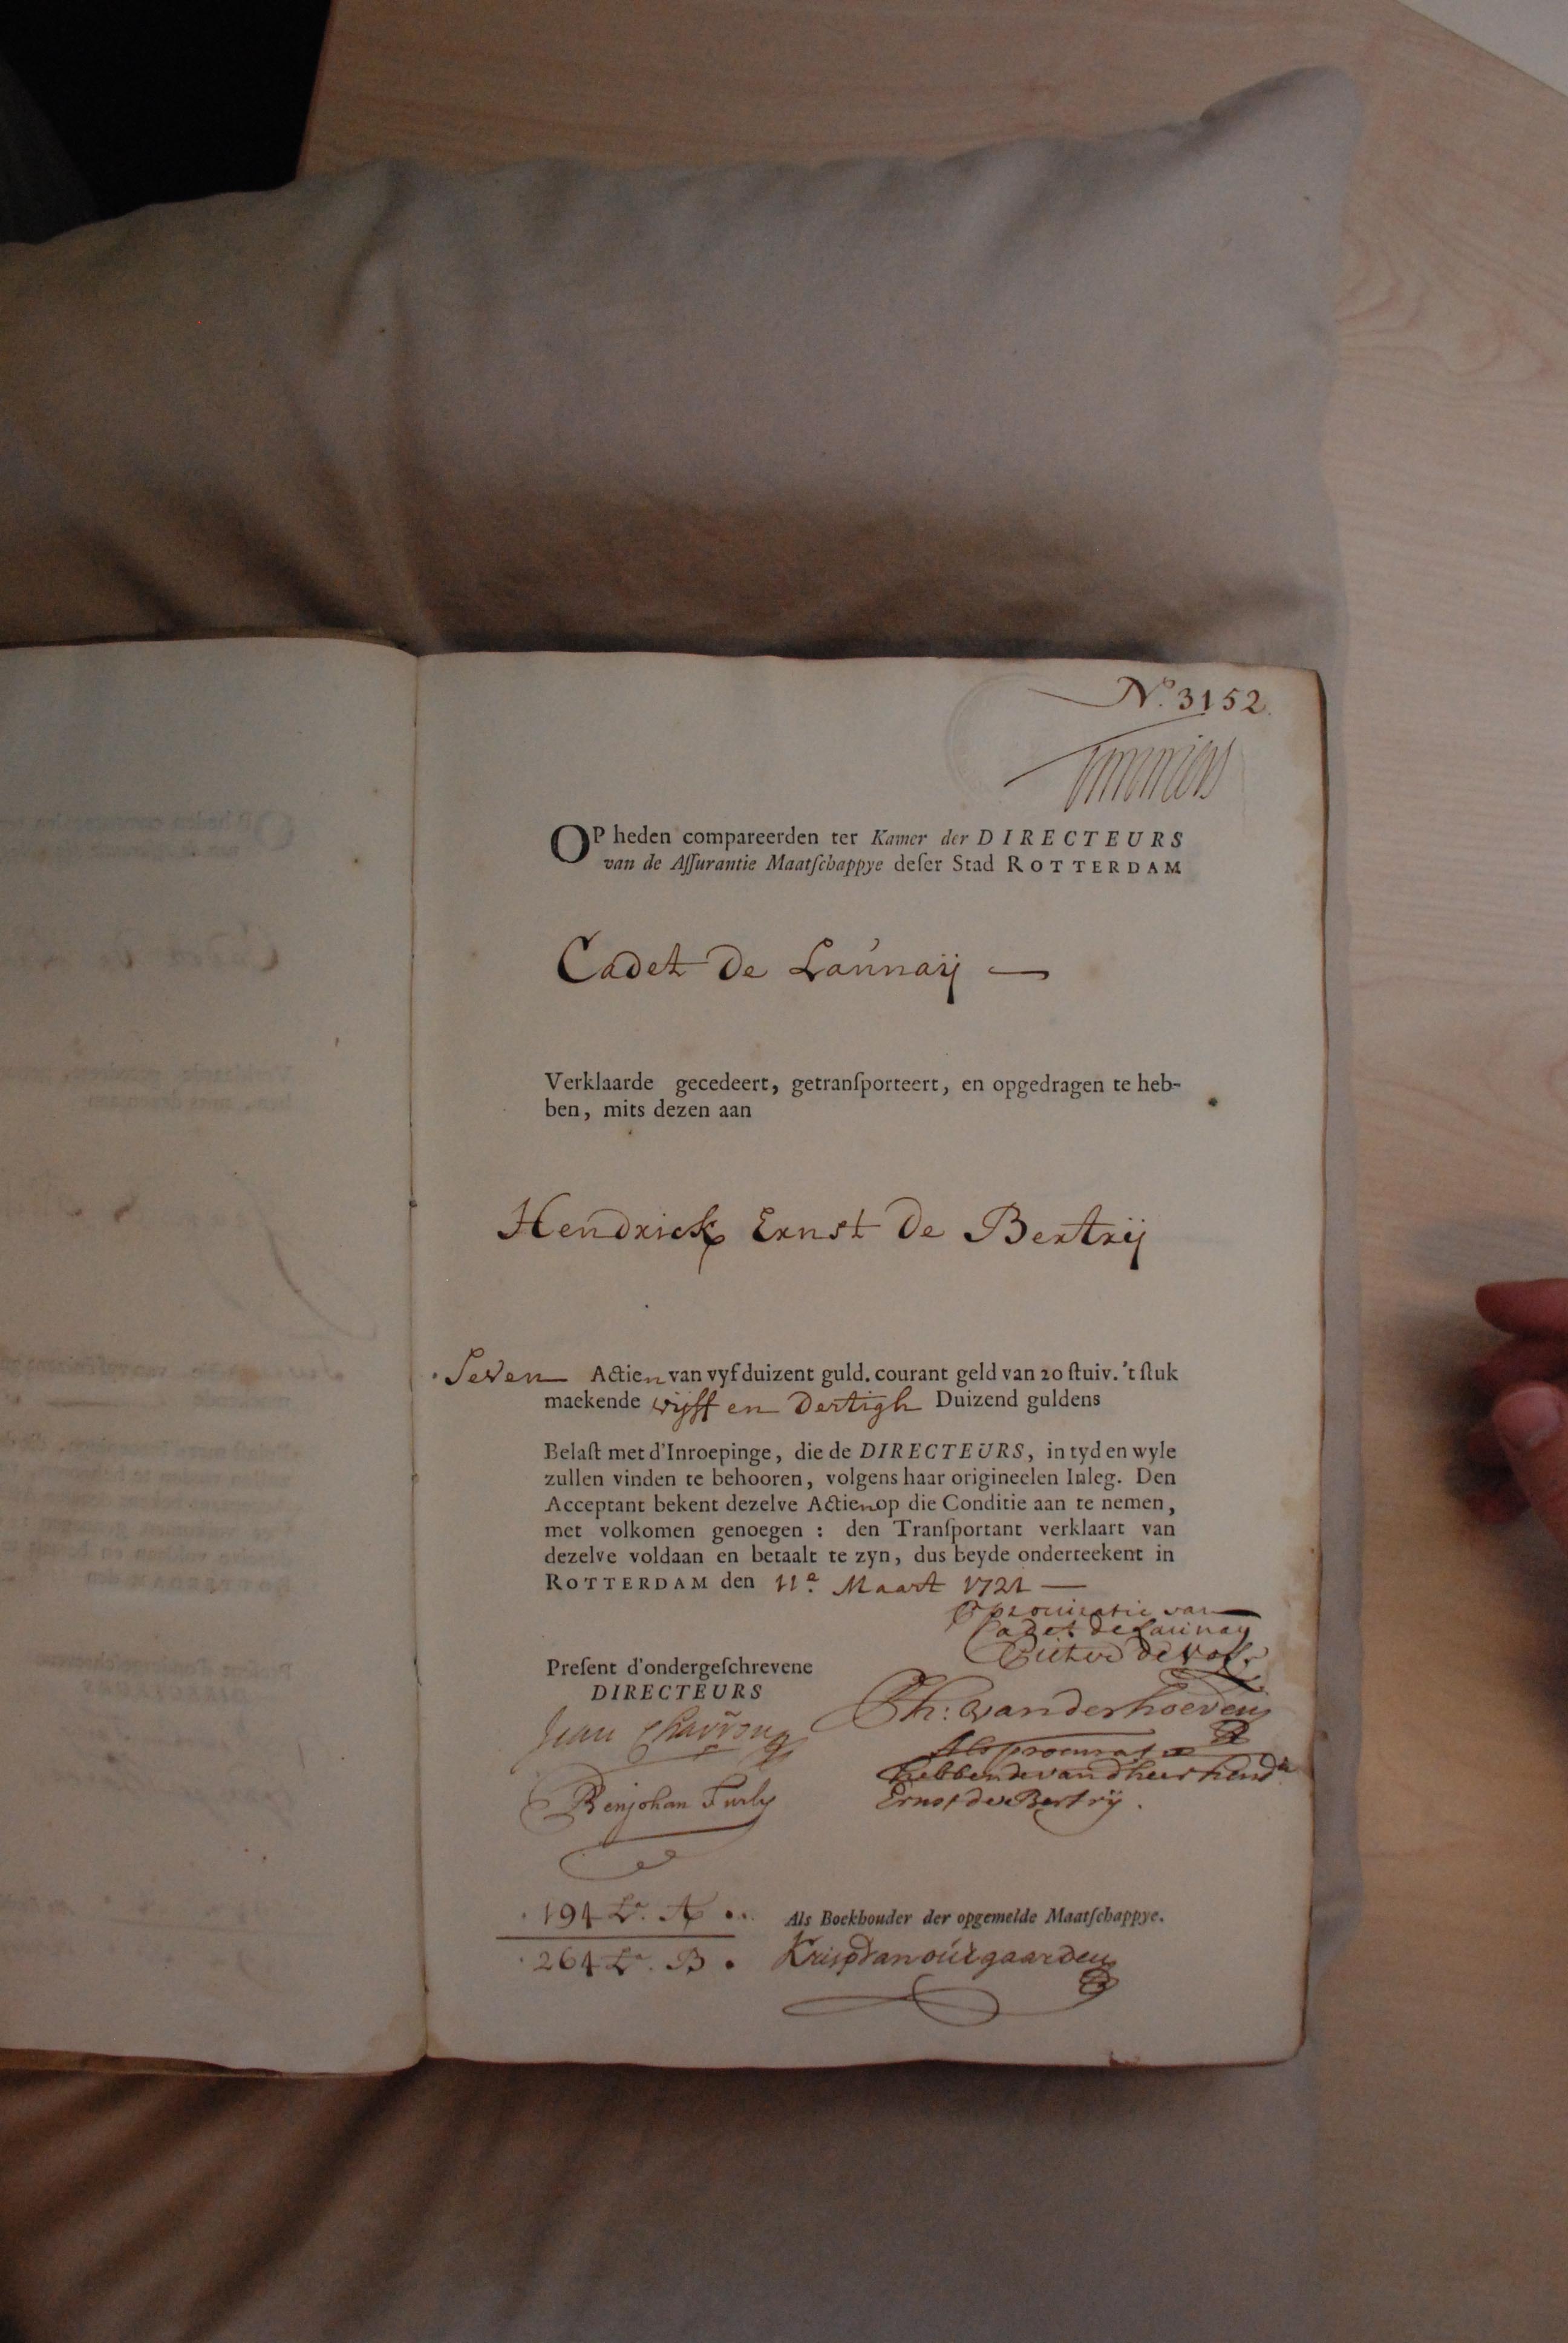 N.º 3152.
OP heden compareerden ter Kamer der DIRECTEURS
van de Aſſurantie Maatſchappye deſer Stad ROTTERDAM
Cadet De Laúnaij —
Verklaarde gecedeert, getranſporteert, en opgedragen te heb-
ben, mits dezen aan
Hendrick Ernst De Bertrij
Seven Actien van vyf duizent guld. courant geld van 20 ſtuiv. 't ſtuk
maekende vijff en Dertigh Duizend guldens
Belaſt met d'Inroepinge, die de DIRECTEURS, in tyd en wyle
zullen vinden te behooren, volgens haar origineelen Inleg. Den
Acceptant bekent dezelve Actien op die Conditie aan te nemen,
met volkomen genoegen : den Tranſportant verklaart van
dezelve voldaan en betaalt te zyn, dus beyde onderteekent in
ROTTERDAM den 11e. Maart 1721 —
van
Cadet de Launay
Pieter de Vos
Preſent d'ondergeſchrevene
DIRECTEURS
Ph: vanderhoeven
Jean
Als procuratie
hebbende van d heer hendk
Benjohan Furly
Ernst de Bertrij.
194 La. A
Als Boekhouder der opgemelde Maatſchappye.
264 La. B